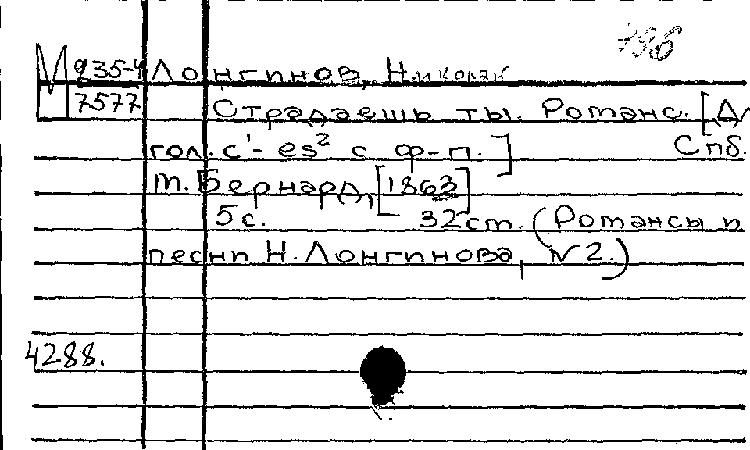 М 935-4 Лонгинов, Николай
7577 Страдаешь ты. Романс. [Д/
гол. c¹- es² с ф-п.] Спб.
М. Бернард, [1863]
5 с. 32 см. (Романсы и
песни Н. Лонгинова, № 2.)
4288.